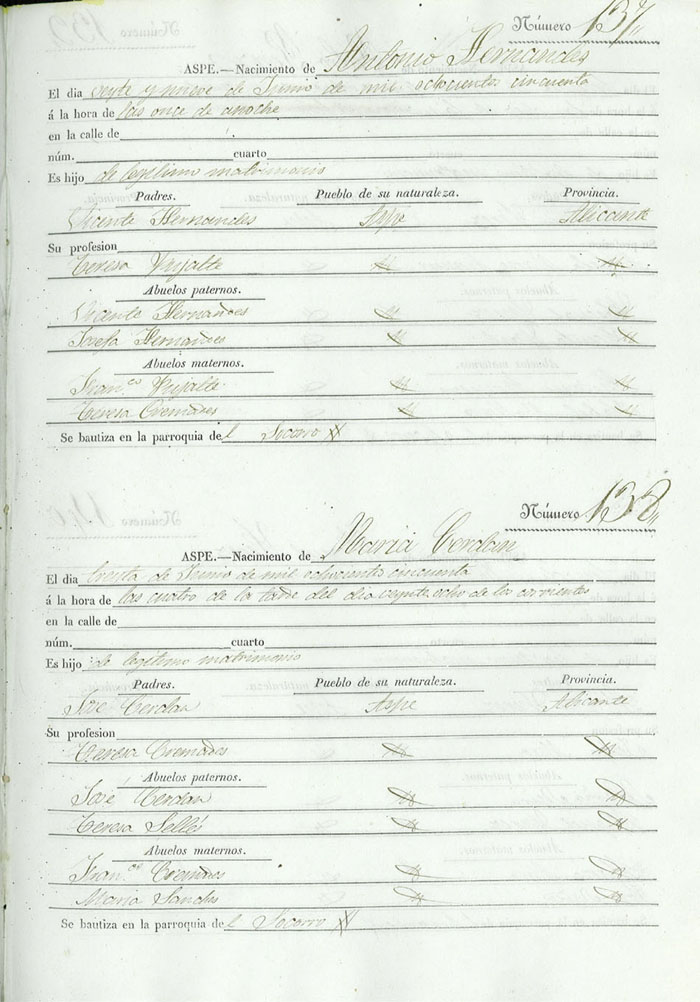 Número 137
ASPE.—Nacimiento de Antonio Hernandes
El dia veyte y nueve de Junio de mil ochocientos cincuenta
á la hora de las once de anoche
en la calle de
núm. cuarto
Es hijo de legitimo matrimonio
Padres. Pueblo de su naturaleza. Provincia.
Vicente Hernandes Aspe Alicante
Su profesion
Teresa Pujalte
Abuelos paternos.
Vicente Hernandes
Josefa Hernandes
Abuelos maternos.
Fran.co Pujalte
Teresa Cremades
Se bautiza en la parroquia del Socorro
Número 138
ASPE.—Nacimiento de Maria Cerdan
El dia treyta de Junio de mil ochocientos cincuenta
á la hora de las cuatro de la tarde del dia veynte ocho de los corrientes
en la calle de
núm. cuarto
Es hijo de legitimo matrimonio
Padres. Pueblo de su naturaleza. Provincia.
José Cerdan Aspe Alicante
Su profesion
Teresa Cremades
Abuelos paternos.
José Cerdan
Teresa Sellés
Abuelos maternos.
Fran.co Cremades
Maria Sanchis
Se bautiza en la parroquia del Socorro